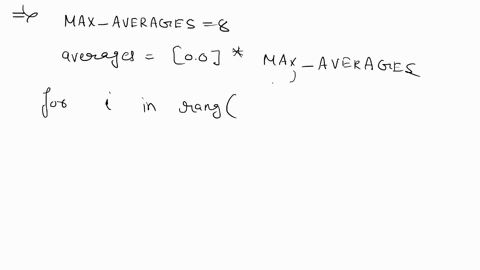 ⇒ MAX_AVERAGES = 8
averages = [0.0] * MAX_AVERAGES
for i in rang(